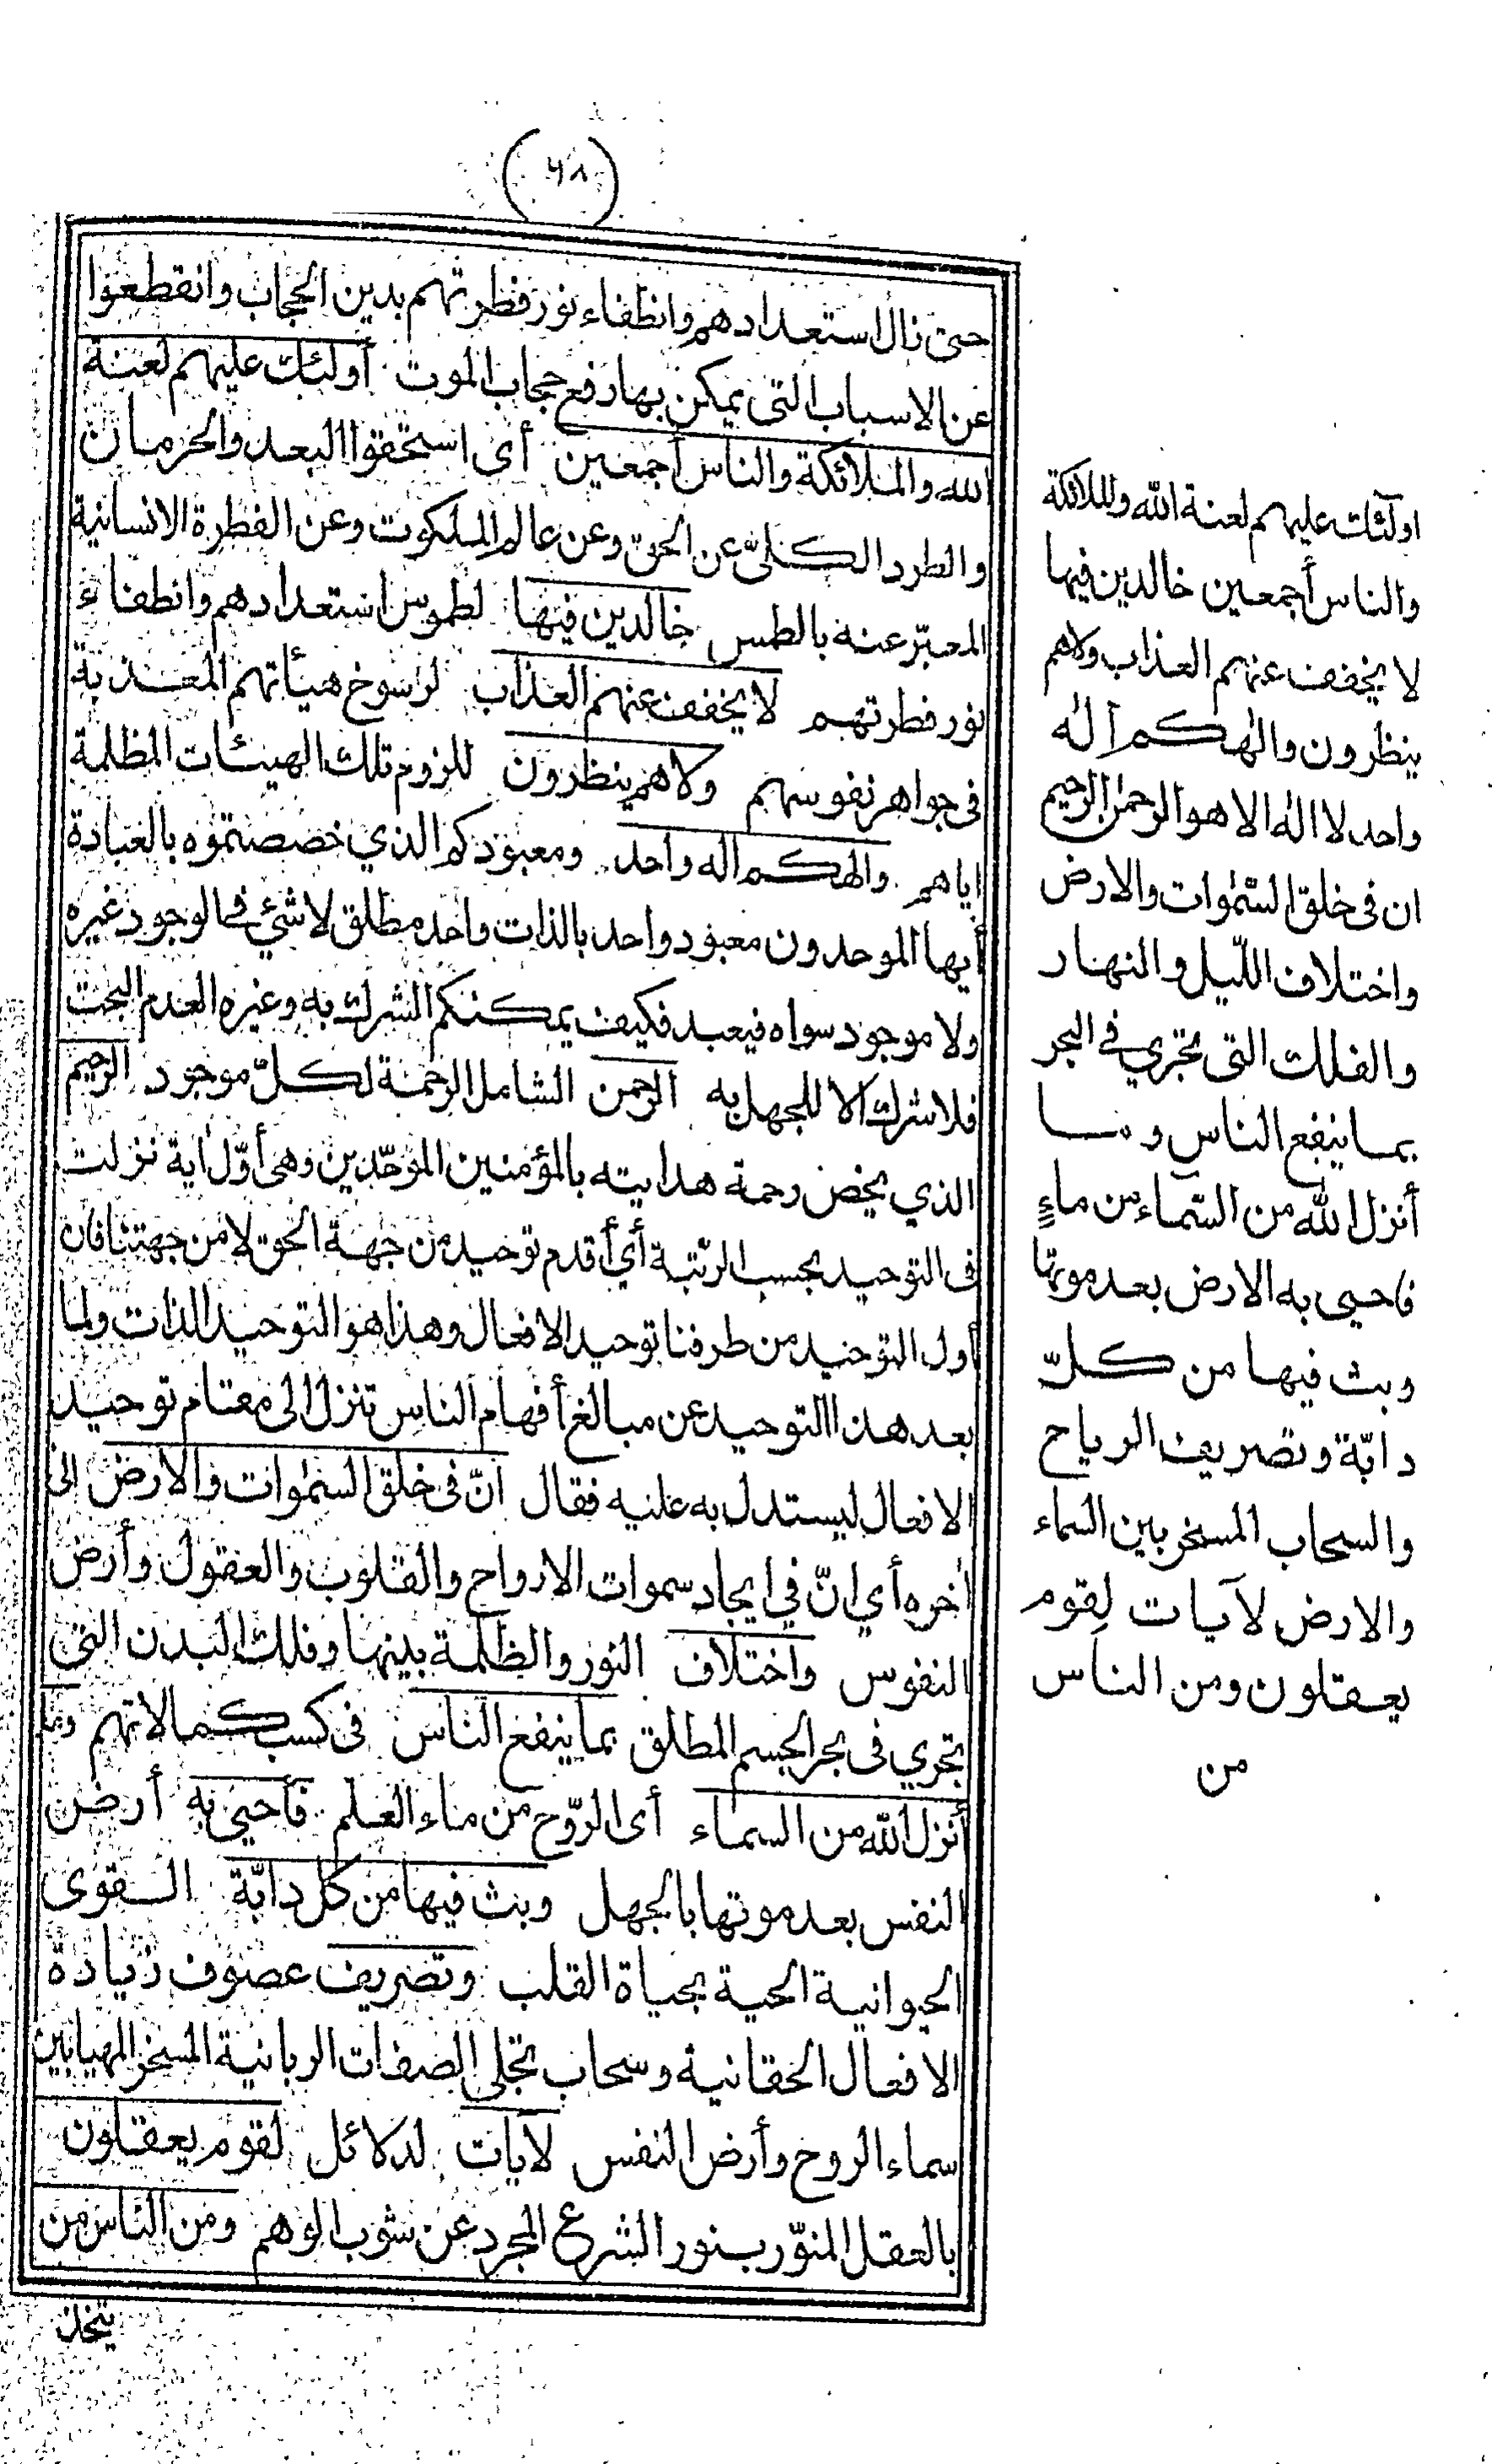 (٦٨)
حتى زال استعدادهم وانطفاء نور فطرتهم بدين الحجاب وانقطعوا
عن الاسباب التى يمكن بها رفع حجاب الموت أولئك عليهم لعنة
الله والملائكة والناس أجمعين أى استحقوا البعد والحرمان
والطرد الكلىّ عن الحق وعن عالم الملكوت وعن الفطرة الانسانية
المعبّر عنه بالطمس خالدين فيها لطموس استعدادهم وانطفاء
نور فطرتهم لا يخفف عنهم العذاب لرسوخ هيأتهم المعذبة
فى جواهر نفوسهم ولا هم ينظرون للزوم تلك الهيئات المظلمة
اياهم والهكم اله واحد ومعبودكم الذي خصصتموه بالعبادة
أيها الموحدون معبود واحد بالذات واحد مطلق لا شئ في الوجود غيره
ولا موجود سواه فيعبد فكيف يمكنكم الشرك به وغيره العدم البحت
فلا شرك الا للجهل به الرحمن الشامل الرحمة لكلّ موجود الرحيم
الذي يخص رحمة هدايته بالمؤمنين الموحّدين وهى أوّل أية نزلت
فى التوحيد بحسب الرّتبة أي أقدم توحيد من جهة الحق لا من جهتنا فان
أول التوحيد من طرفنا توحيد الافعال وهذا هو التوحيد الذات ولما
بعد هذا التوحيد عن مبالغ أفهام الناس تنزل الى مقام توحيد
الافعال ليستدل به عليه فقال انّ فى خلق السمٰوات والارض الى
أخره أي انّ في ايجاد سموات الارواح والقلوب والعقول وأرض
النفوس واختلاف النور والظلمة بينها وفلك البدن التى
تجري فى بحر الجسم المطلق بما ينفع الناس فى كسب كمالاتهم وما
أنزل الله من السماء أى الرّوح من ماء العلم فأحيى به أرض
النفس بعد موتها بالجهل وبث فيها من كل دابّة القوى
الحيوانية الحية بحياة القلب وتصريف عصوف زيادة
الافعال الحقانية وسحاب تجلى الصفات الربانية المسخر المهيا بين
سماء الروح وأرض النفس لآيات لدلائل لقوم يعقلون
بالعقل المنوّر بنور الشرع المجرد عن شوب الوهم ومن الناس من
يتخذ
اولٓئك عليهم لعنة الله والملائكة
والناس أجمعين خالدين فيها
لا يخفف عنهم العذاب ولا هم
ينظرون والٰهكم الٰه
واحد لا اله الا هو الرحمٰن الرحيم
ان فى خلق السّمٰوات والارض
واختلاف اللّيل والنهار
والفلك التى تجري في البحر
بما ينفع الناس وما
أنزل الله من السّماء من ماءٍ
فاحيى به الارض بعد موتها
وبث فيها من كلّ
دابّة وتصريف الرياح
والسحاب المسخر بين السماء
والارض لآيات لِقوم
يعقلون ومن الناس
من